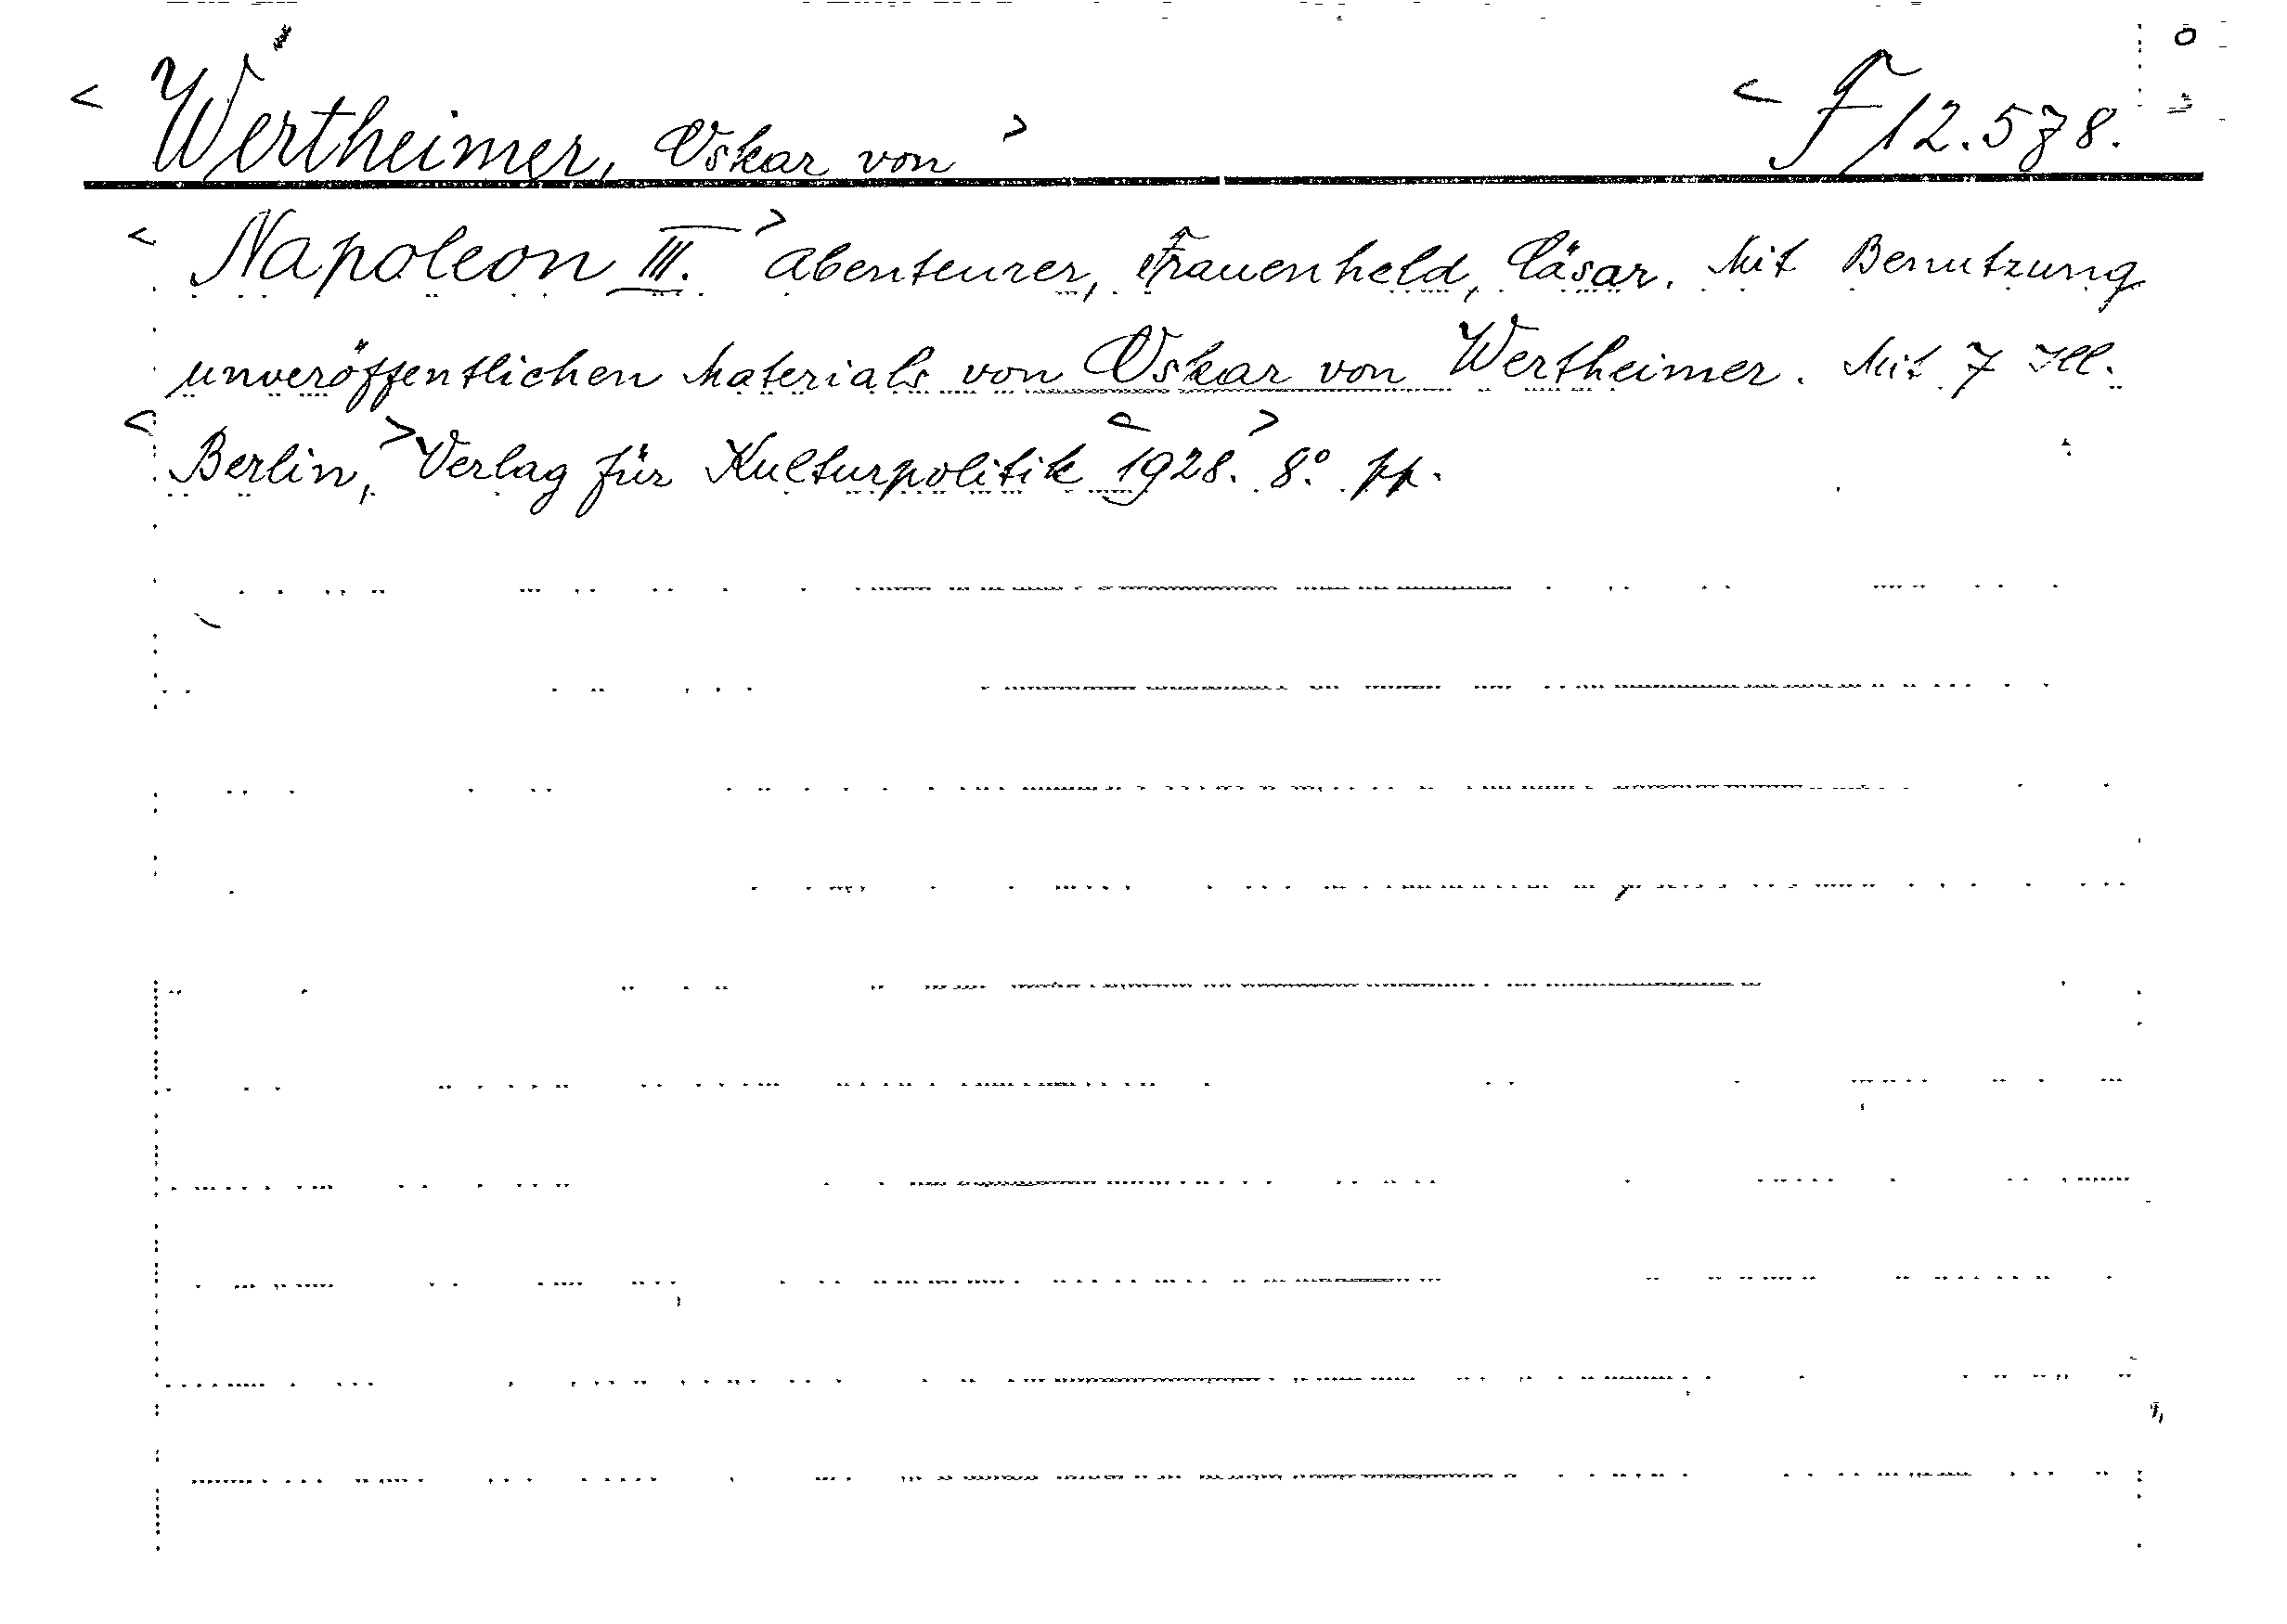 < Wertheimer, Oskar von > < F 12.578.
< Napoleon III. > Abenteurer, Frauenheld, Cäsar. Mit Benutzung
unveröffentlichen Materials von Oskar von Wertheimer. Mit 7 Ill.
< Berlin, > Verlag für Kulturpolitik < 1928. > 8.° pp.